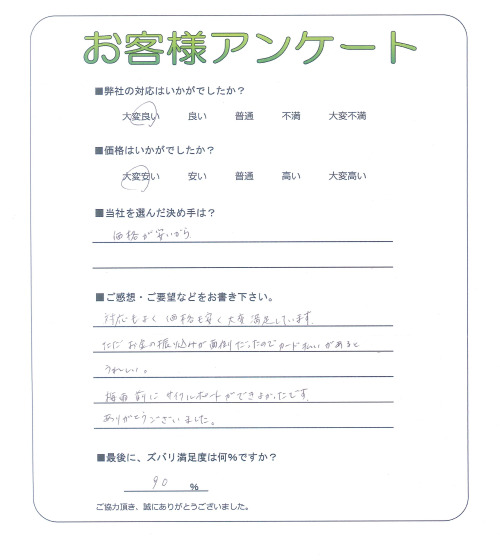 お客様アンケート
■弊社の対応はいかがでしたか?
大変良い 良い 普通 不満 大変不満
■価格はいかがでしたか?
大変安い 安い 普通 高い 大変高い
■当社を選んだ決め手は?
価格が安いから
■ご感想・ご要望などをお書き下さい。
対応もよく価格も安く大変満足しています。
ただお金の振り込みが面倒だったのでカード払いがあると
うれしい。
梅雨前にサイクルポートができよかったです。
ありがとうございました。
■最後に、ズバリ満足度は何%ですか?
90 %
ご協力頂き、誠にありがとうございました。